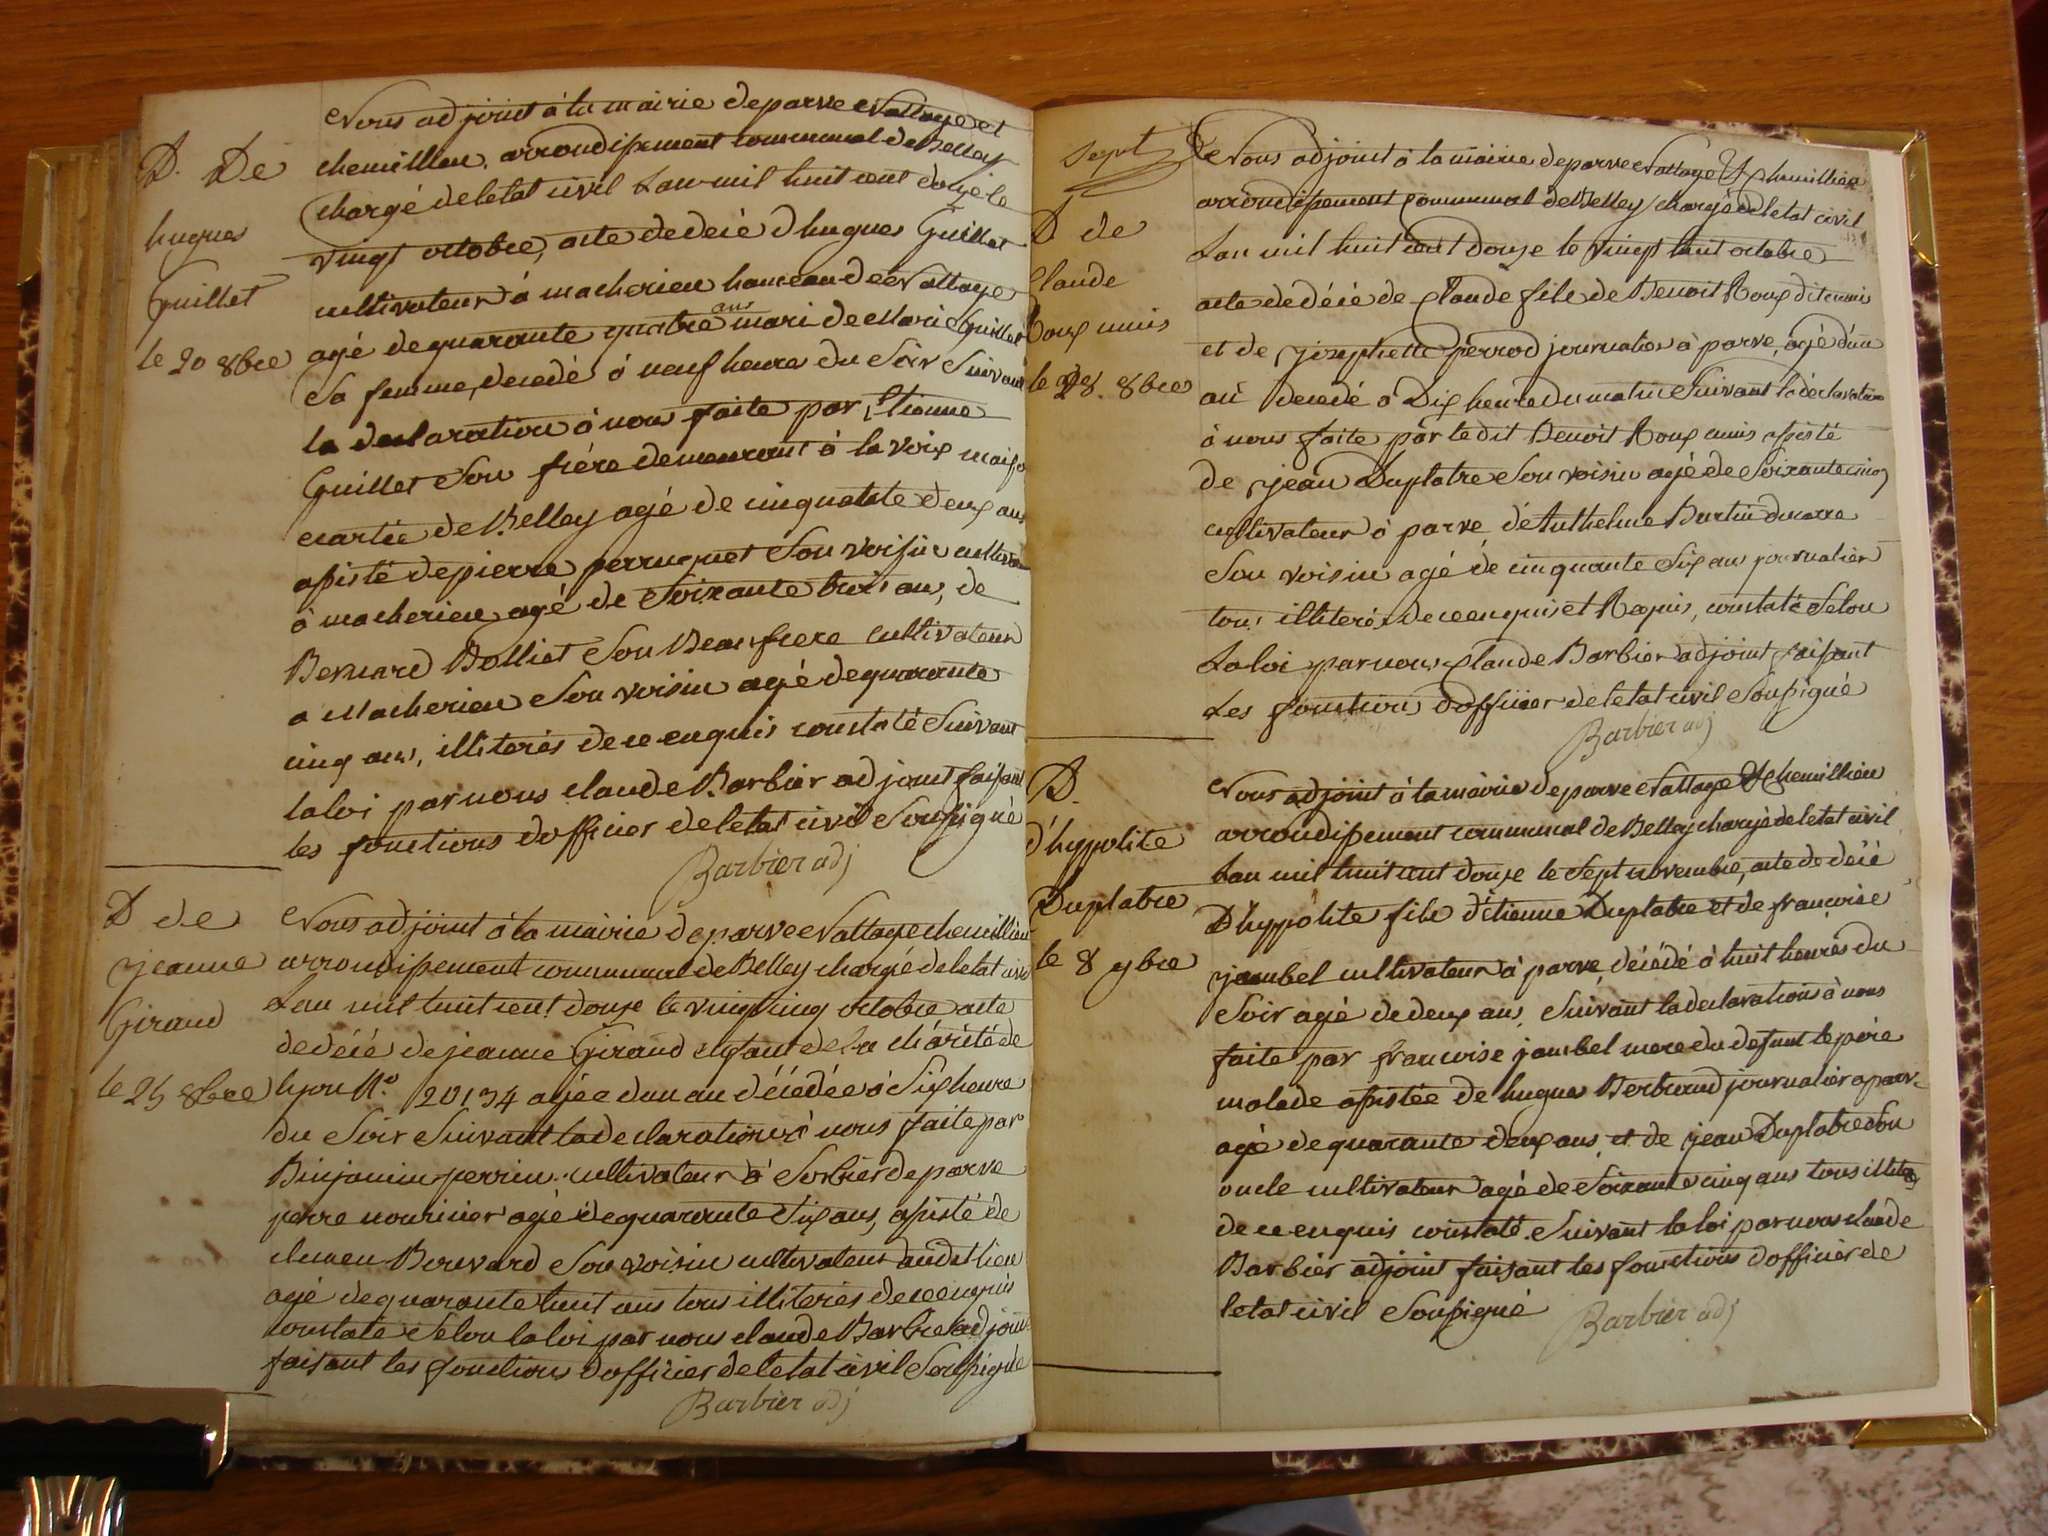 D. De
hugues
Guillet
le 20 8bre
Nous adjoint à la mairie de parve Nattage et
chemillieu, arrondissement communal de Belley
chargé de letat civil Lan mil huit cent douze le
vingt octobre, acte de décé d hugues Guillet
cultivateur à macherieu hameau de Nattage
agé de quarante quatre ans mari de Marie Guillet
Sa femme, decedé à neuf heure du Soir Suivant
la declaration à nous faite par Etienne
Guillet Son frére demeurant à la voix maison
ecartée de Belley agé de cinquante deux ans
assisté de pierre perruquet Son voisin cultivateur
à macherieu agé de Soixante trois ans, de
Bernard Bolliet Son Beau frere cultivateur
a Macherieu Son voisin agé de quarante
cinq ans, illiterés de ce enquis constaté Suivant
la loi par nous claude Barbier adjoint faisant
les fonctions dofficier de letat civil Soussigné
Barbier adj
D de
jeanne
Giraud
le 25 8bre
Nous adjoint à la mairie de parve Nattage chemillieu
arrondissement communal de Belley chargé de letat civil
Lan mil huit cent douze le vingt cinq octobre acte
de décé de jeanne Giraud enfant de la charité de
lyon N.o 20134 agée dun an décédée à Six heure
du Soir Suivant la declaration à nous faite par
Binjamin perrin cultivateur à Sorbier de parve
perre nouricier agé de quarante Six ans, assisté de
clemen Bouvard Son voisin cultivateur audit lieu
agé de quarante huit ans tous illiterés de ce enquis
constaté Selon la loi par nous claude Barbier adjoint
faisant les fonctions dofficier de letat civil Soussigné
Barbier adj
Sept
D de
Claude
Roux muis
le 28. 8bre
Nous adjoint à la mairie de parve Nattage & Chemillieu
arrondissement communal de Belley chargé de letat civil
Lan mil huit cent douze le vingt huit octobre
acte de décé de Claude fils de Benoit Roux dit muis
et de josephette perrod journalier à parve, agé d'un
an decedé à Dix heure du matin Suivant la déclaration
à nous faite par ledit Benoit Roux muis assisté
de jean Duplatre Son voisin agé de Soixante cinq
cultivateur à parve, de Anthelme Burtin
Son voisin agé de cinquante Six ans journalier
tous illiterés de ce enquis et Requis, constaté Selon
La loi par nous Claude Barbier adjoint faisant
Les fonctions dofficier de letat civil Soussigné
Barbier adj
D.
d'hyppolite
Duplatre
le 8 9bre
Nous adjoint à la mairie de parve Nattage & Chemillieu
arrondissement communal de Belley chargé de letat civil
Lan mil huit cent douze le Sept novembre, acte de décé
D hyppolite fils d'étienne Duplatre et de françoise
jambel cultivateur à parve, décédé à huit heures du
Soir agé de deux ans, Suivant la declarations à nous
faite par francoise jambel mere du defunt le père
malade assistée de hugues Bertrand journalier a parve
agé de quarante deux ans et de jean Duplatre Son
oncle cultivateur agé de Soixante cinq ans tous illiterés
de ce enquis constaté Suivant la loi par nous claude
Barbier adjoint faisant les fonctions dofficier de
letat civil Soussigné
Barbier adj